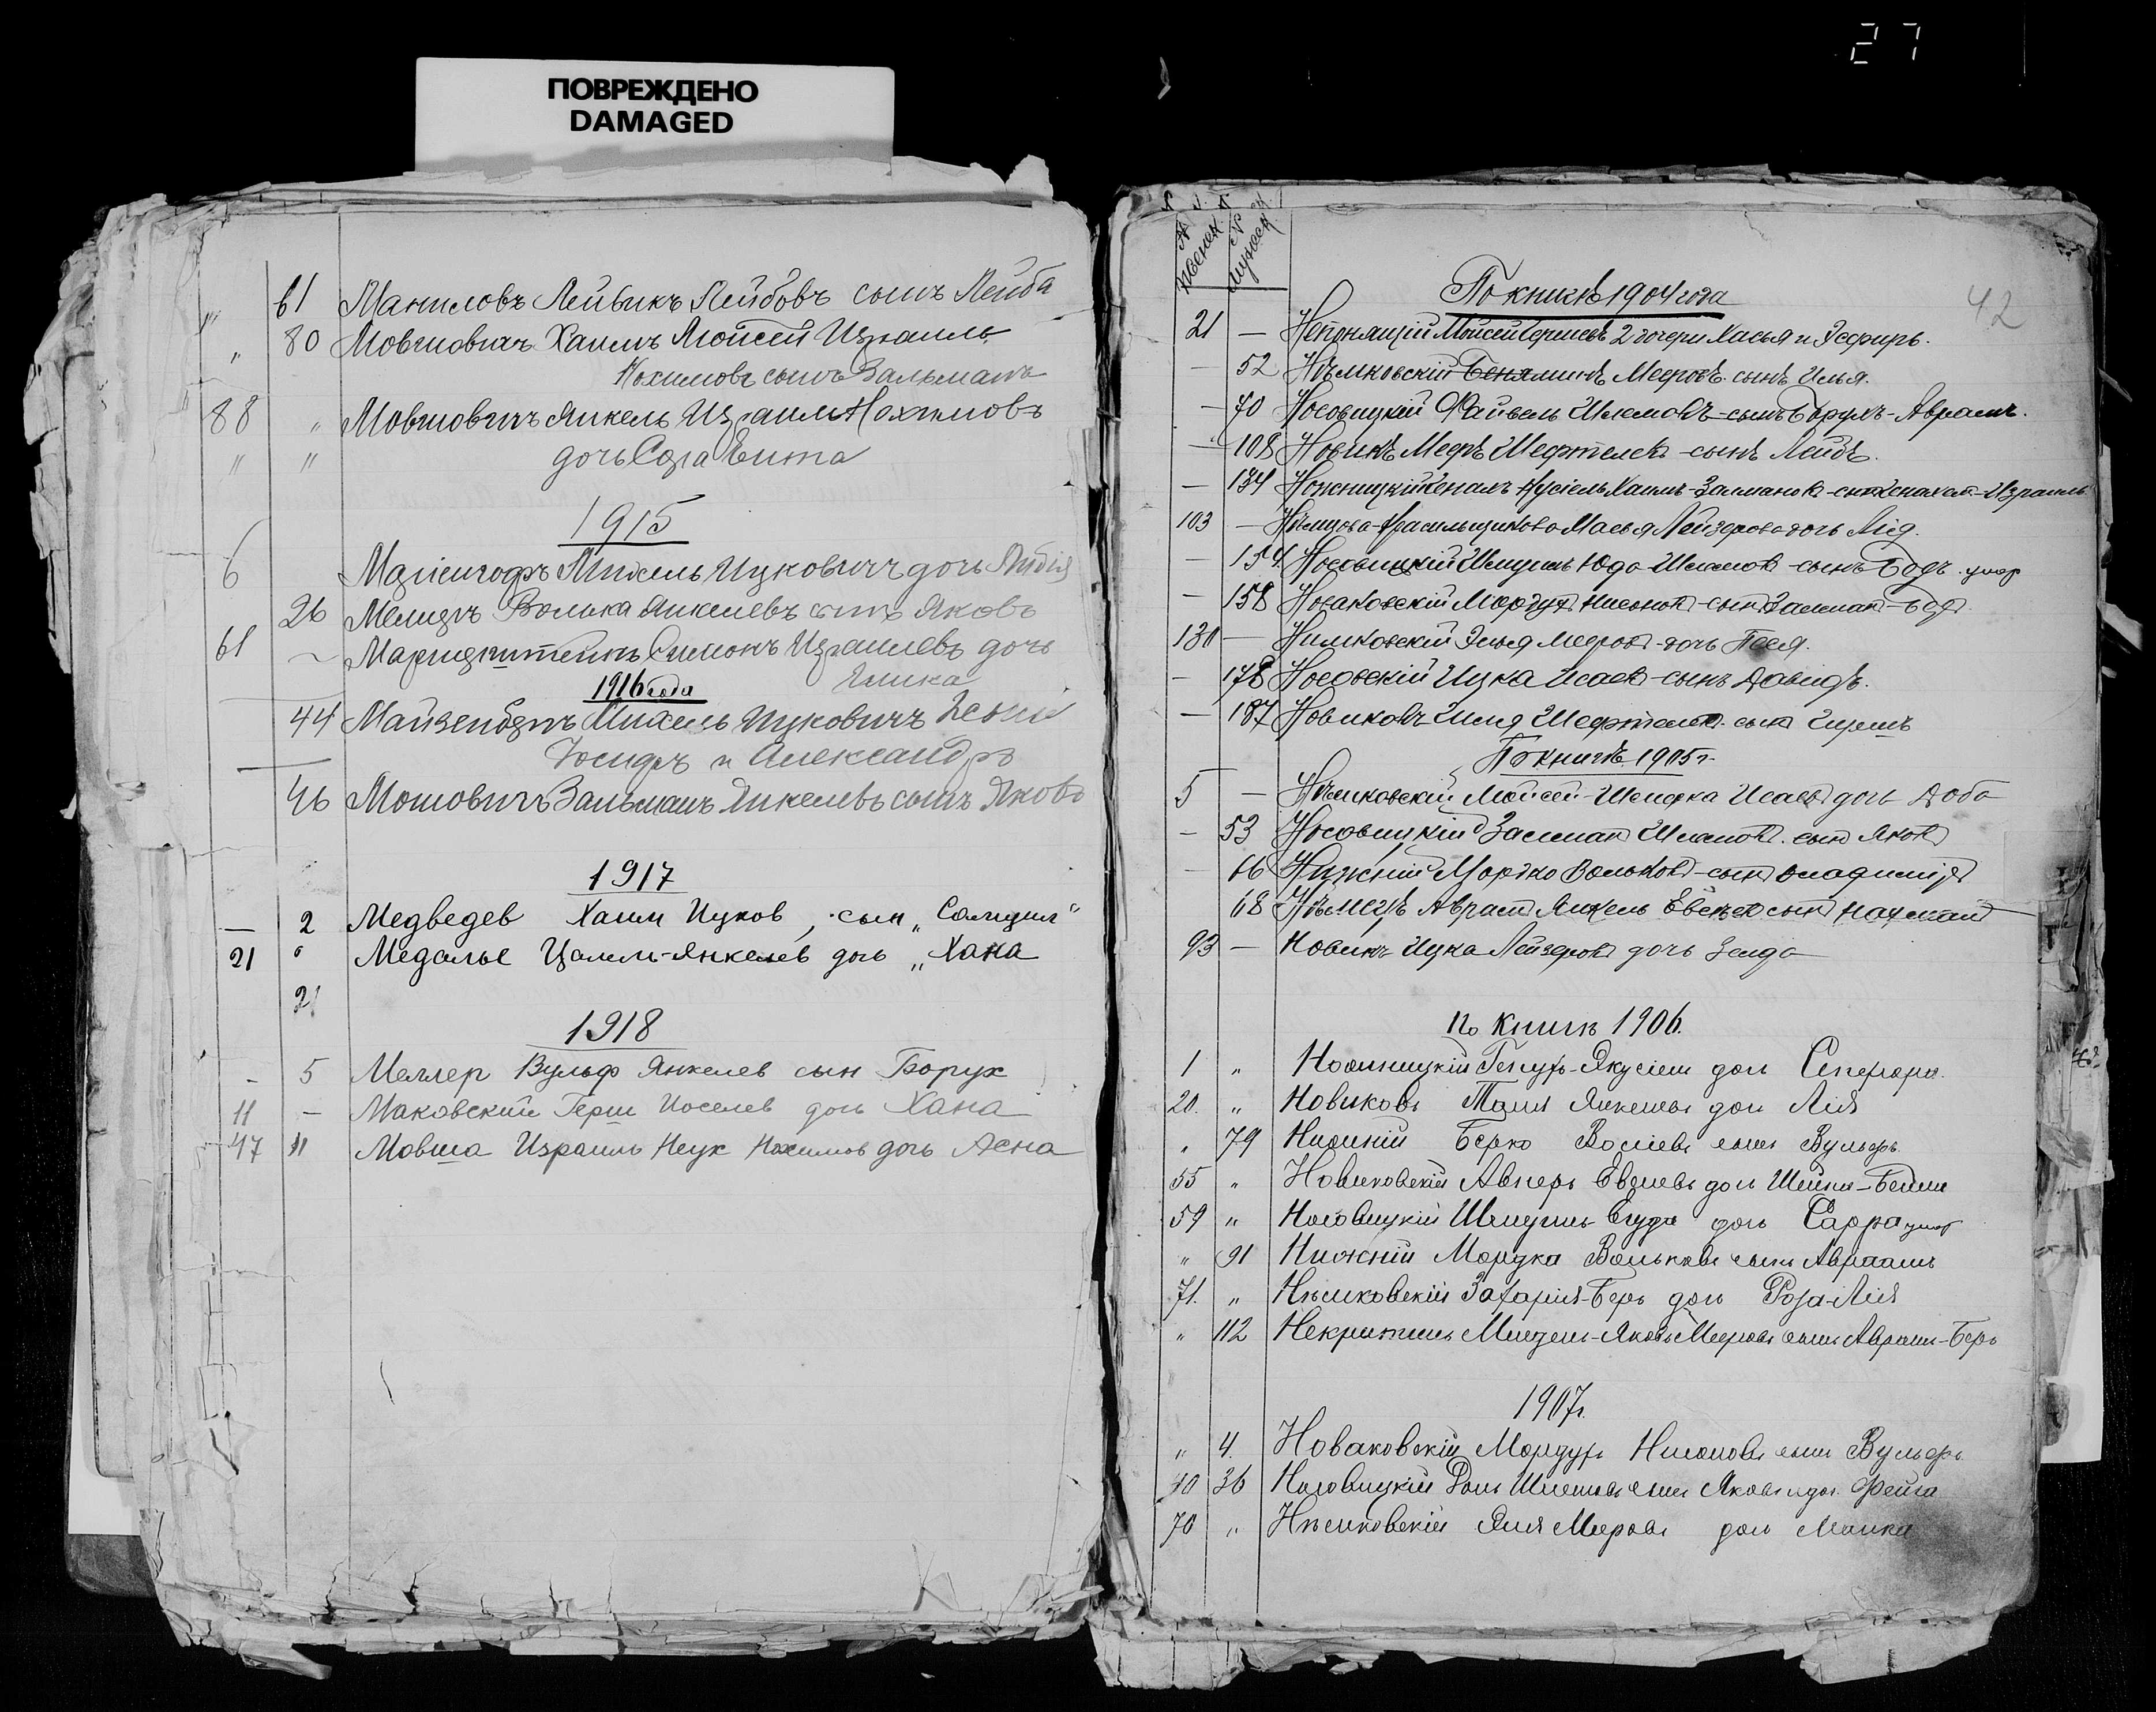 27
ПОВРЕЖДЕНО
DAMAGED
" 61 Маниловъ Лейвикъ Лейбовъ сынъ Лейба
" 80 Мовшовичъ Хаимъ Мойсей Израиль
Нохимовъ сынъ Зальманъ
88 " Мовшовичъ Янкель Израиль Нохимовъ
" " дочь Сора Ента
1915
6 Михель Ицковичъ дочь
26 Мелцеръ Волька Янкелевъ сынъ Яковъ
61 Симонъ Израилевъ дочь
1916 года
44 Майзенбергъ Михель Ицковичъ
и Александръ
46 Мошовичъ Зальманъ Янкелевъ сынъ Яковъ
1917
— 2 Медведев Хаим Ицков, сын „Самуил"
21 " Медалье Цалель-Янкелев дочь „Хана
21
1918
- 5 Меллер Вульф Янкелев сын Борух
11 — Маковский Герш Иоселев дочь Хана
47 " Мовша Израиль Неук Нохимов дочь Асна
42
По книгѣ 1904 года
21 — Непомнящій Мойсей Гершевъ 2 дочери Хасья и Эсфирь.
— 52 Нѣмковскій Беняминъ Мееровъ сынъ Илья.
— 70 Носовицкій Файвель Шлемовъ - сынъ Борухъ-Авраамъ.
— 108 Новикъ Мееръ Шефтелевъ - сынъ Лейбъ.
— 134 Хаимъ-Залмановъ - Израиль
103 — Нѣмцова-Красильщикова Масья Лейзерова дочь Лія.
— 154 Носовицкій Шмуилъ Юда Шлемовъ - сынъ Беръ. умер
— 158 Новаковскій Мордухъ Нисоновъ - сынъ Залманъ-Беръ
130 — Нимковскій Элья Мееровъ - дочь Песя.
— 178 Носовскій Ицка Исаевъ - сынъ Давидъ.
— 187 Новиковъ Шефтелевъ сынъ
По книгѣ 1905 г.
5 — Нѣмковскій Мойсей-Шлифка Исаевъ дочь Доба
— 53 Носовицкій Залманъ Шлемовъ. сынъ Яковъ
— 66 Нижній Мордко Вольковъ - сынъ Владиміръ
68 Нѣмецъ Авраамъ Янкель сынъ Нахманъ
93 — Новикъ Ицка Лейзеровъ дочь Зелда
По книгѣ 1906.
1 " дочь
20. " Новиковъ Янкелевъ дочь Лія
" 79 Нижній Берко Вольевъ сынъ Вульфъ
55 " Новиковскій Авнеръ Евелевъ дочь Шейна-Бейла
59 " Носовицкій Шмуилъ-Егуда дочь Сарра умер
" 91 Нижній Мордка Вольковъ сынъ Авраамъ
71. " Нѣмковскій Захарія-Беръ дочь Роза-Лія
" 112 Некритинъ Мендель-Яковъ Мееровъ сынъ Авраамъ-Беръ
1907 г.
" 4. Новаковскій Мордухъ Нисоновъ сынъ Вульфъ
40 36 Носовицкій Шлемовъ сынъ Яковъ и дочь Фейга
70 " Нѣмковскій Эля Мееровъ дочь Малка